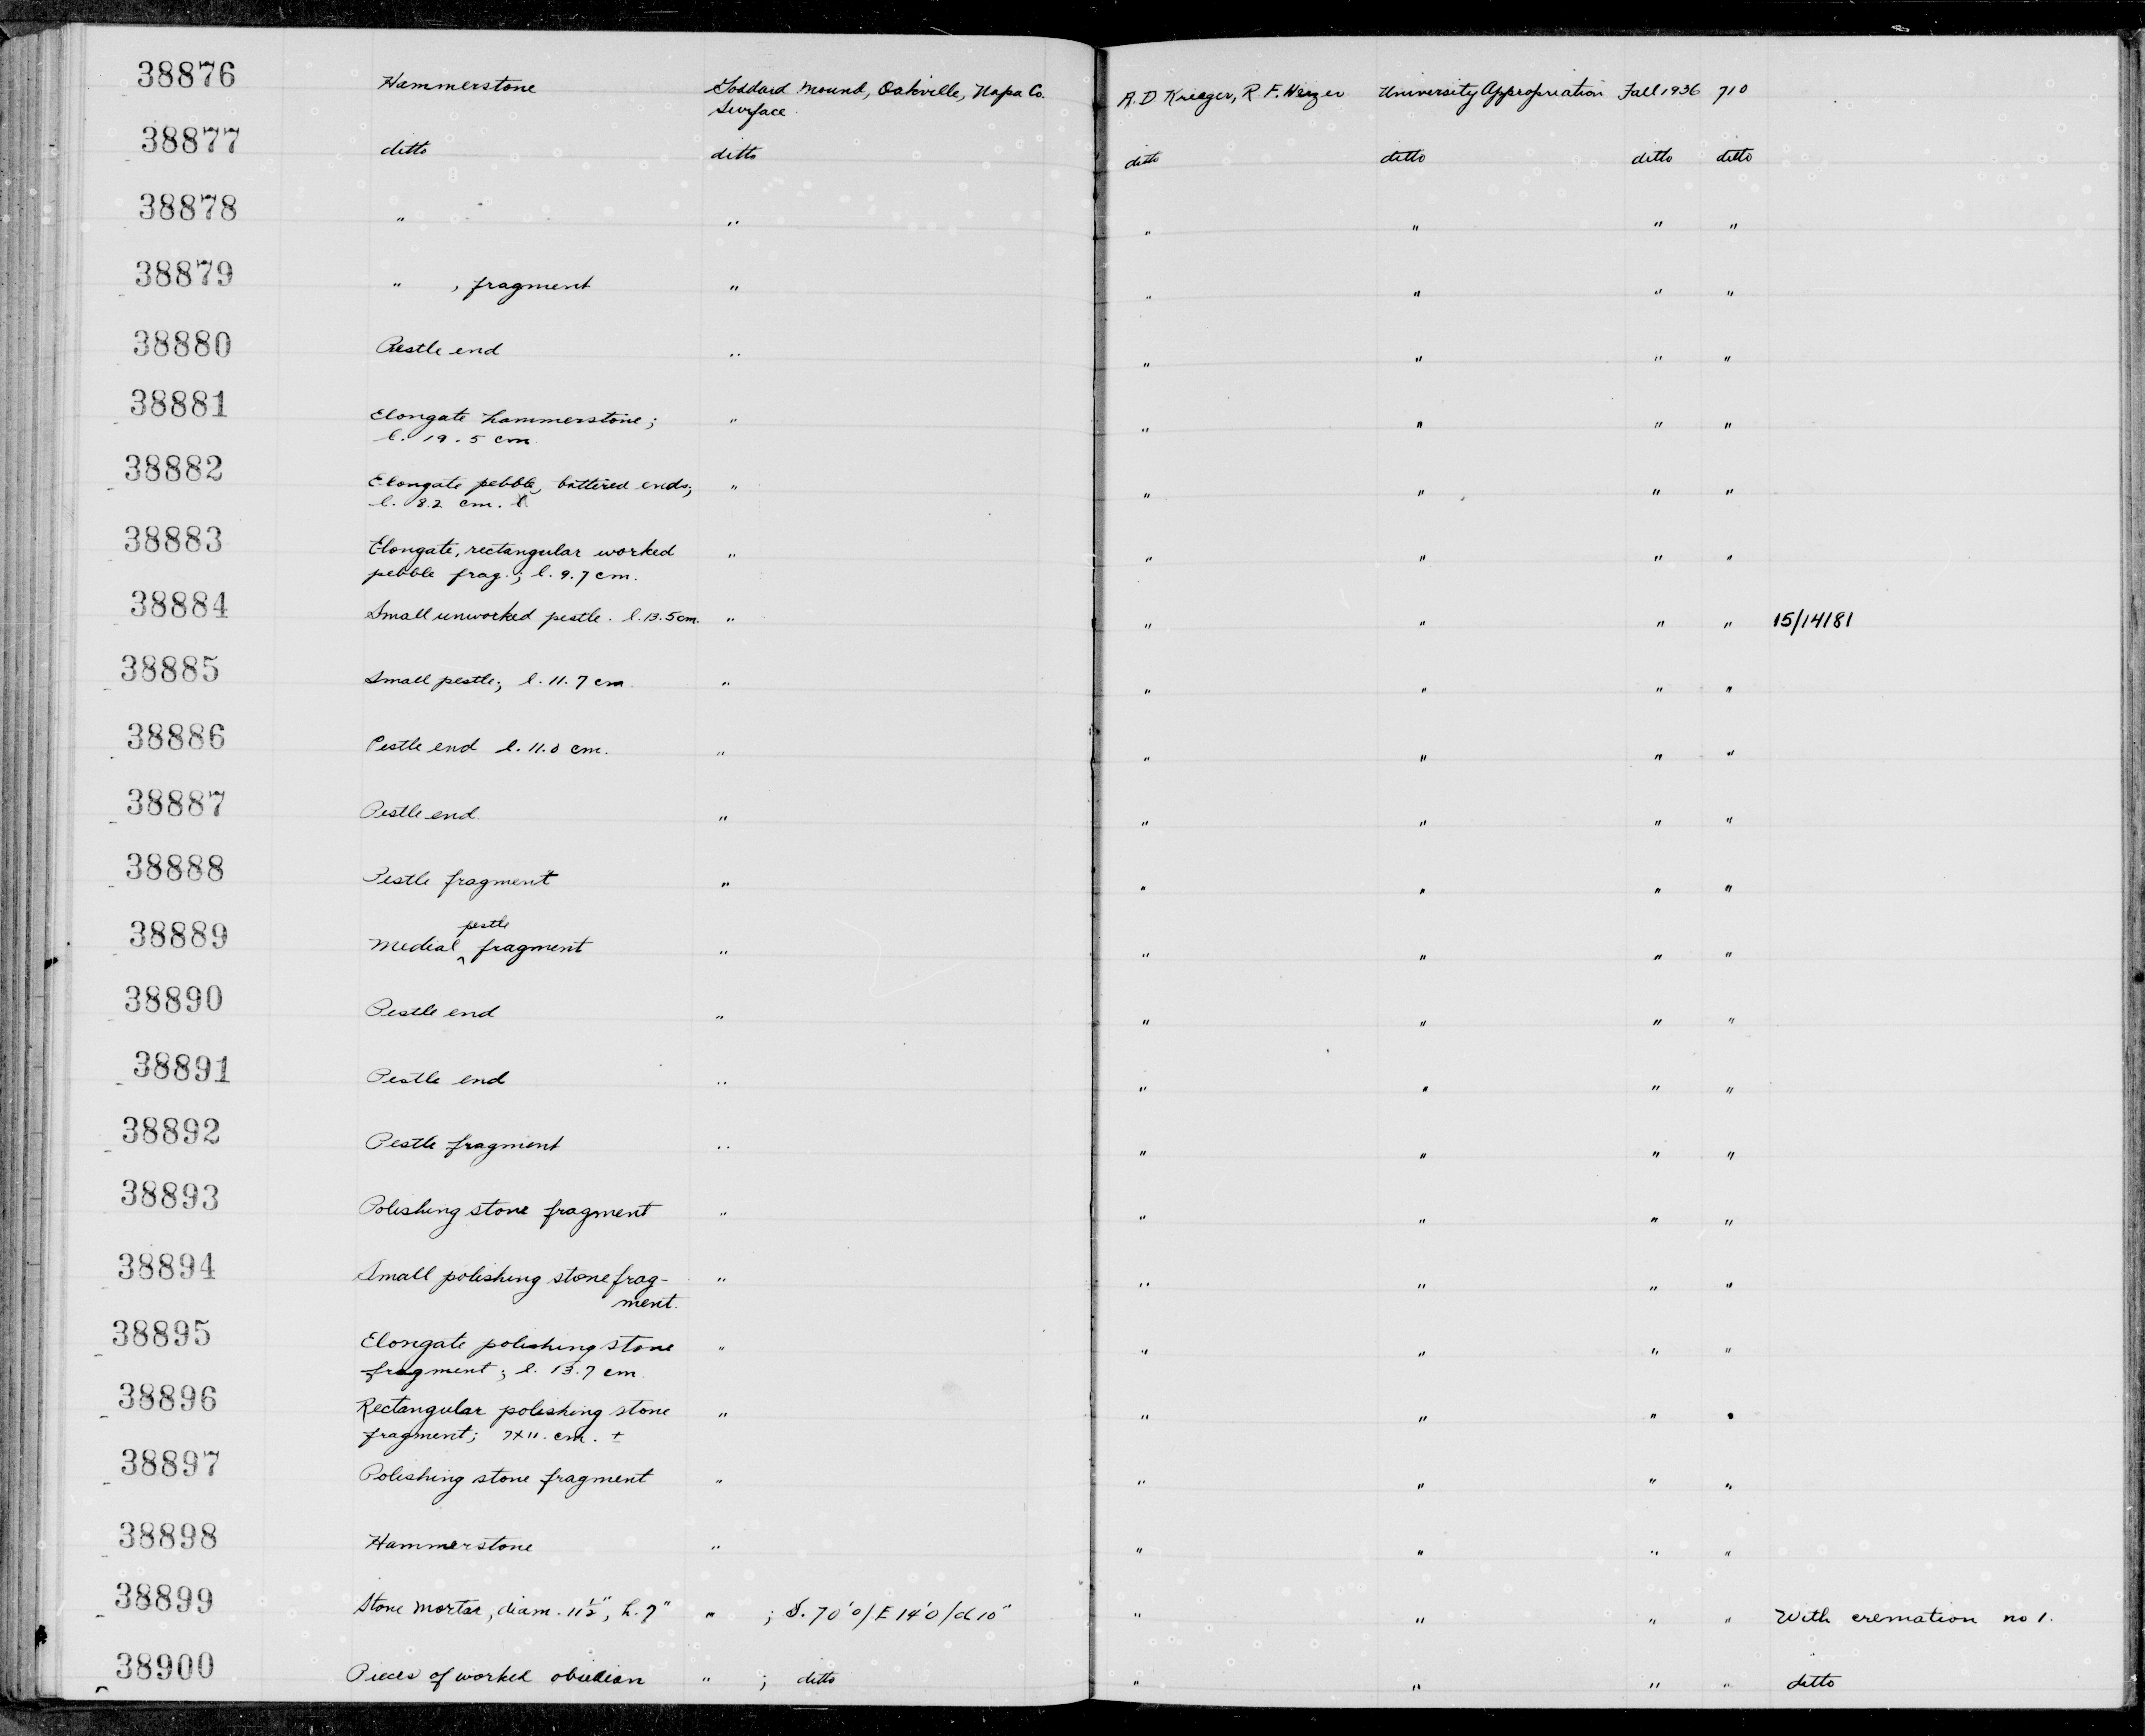 38876 Hammerstone Goddard Mound, Oakville, Napa Co. A. D. Krieger, R. F. Heizer University Appropriation Fall 1936 710
Surface
38877 ditto ditto ditto ditto ditto ditto
38878 " " " " " "
38879 " , fragment " " " " "
38880 Pestle end " " " " "
38881 Elongate hammerstone; " " " " "
l. 19.5 cm
38882 Elongate pebble, battered ends; " " " " "
l. 8.2 cm.
38883 Elongate, rectangular worked " " " " "
pebble frag.; l. 9.7 cm.
38884 Small unworked pestle. l. 13.5 cm. " " " " " 15/14181
38885 Small pestle; l. 11.7 cm. " " " " "
38886 Pestle end l. 11.0 cm. " " " " "
38887 Pestle end " " " " "
38888 Pestle fragment " " " " "
38889 Medial pestle fragment " " " " "
38890 Pestle end " " " " "
38891 Pestle end " " " " "
38892 Pestle fragment " " " " "
38893 Polishing stone fragment " " " " "
38894 Small polishing stone frag- " " " " "
ment.
38895 Elongate polishing stone " " " " "
fragment; l. 13.7 cm.
38896 Rectangular polishing stone " " " " "
fragment; 7x11. cm. ±
38897 Polishing stone fragment " " " " "
38898 Hammerstone " " " " "
38899 Stone mortar, diam. 11½", h. 7" " ; S. 70'0/E 14'0/d 10" " " " " With cremation no 1.
38900 Pieces of worked obsidian " ; ditto " " " " ditto